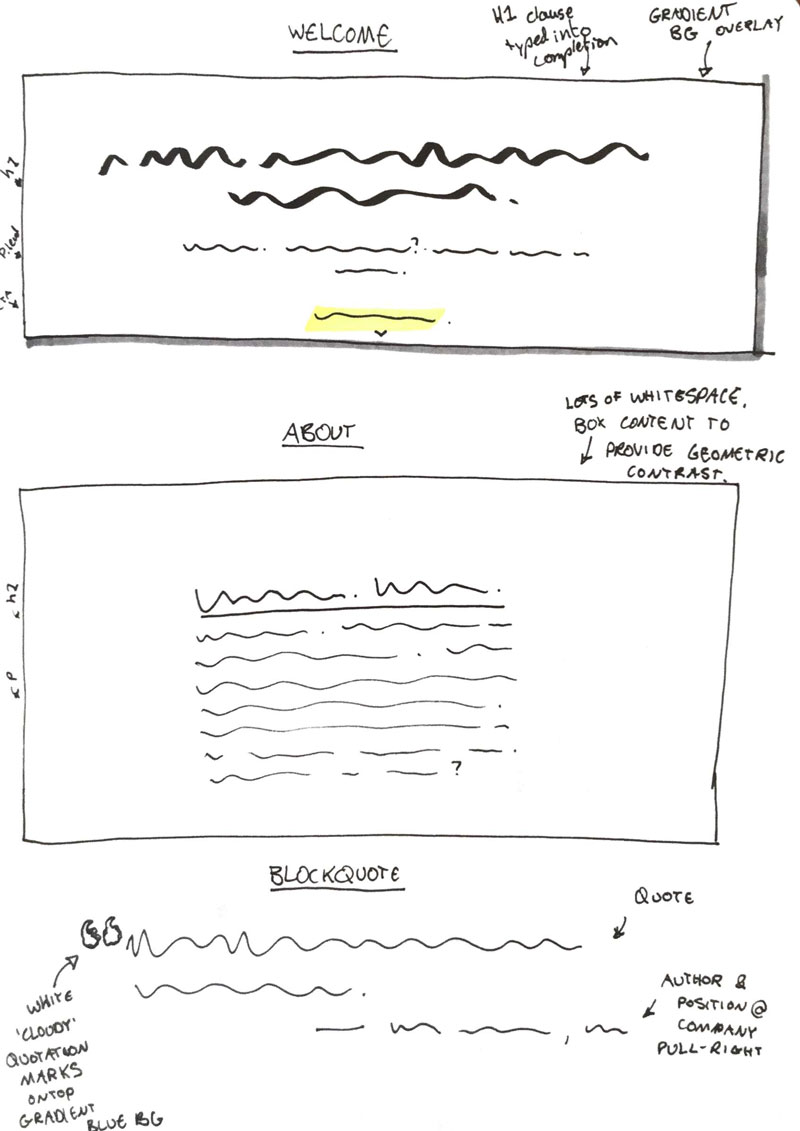 WELCOME
H1 clause
typed into
completion
GRADIENT
BG OVERLAY
h2
P.lead
?
ABOUT
LOTS OF WHITESPACE.
BOX CONTENT TO
PROVIDE GEOMETRIC
CONTRAST.
h2
P
?
BLOCKQUOTE
QUOTE
WHITE
'CLOUDY'
QUOTATION
MARKS
ONTOP
GRADIENT
BLUE BG
AUTHOR &
POSITION @
COMPANY
PULL-RIGHT